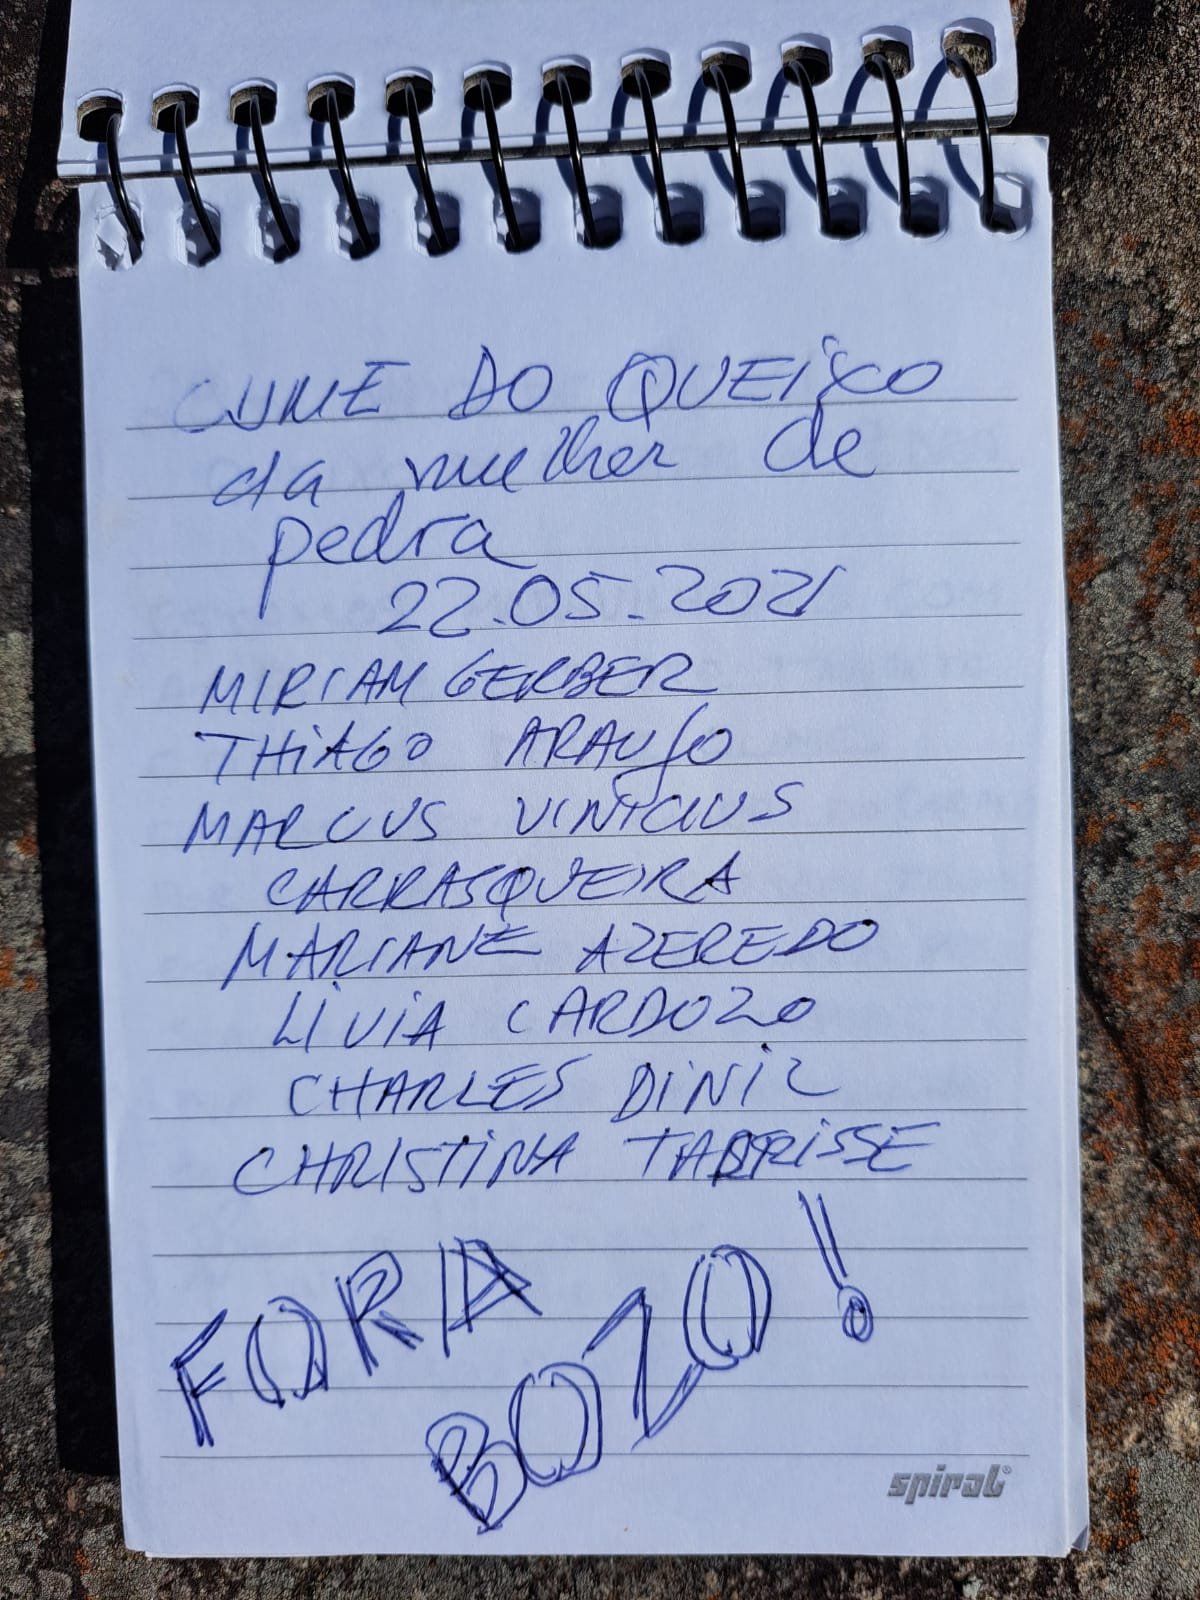 CUME DO QUEIXO
da mulher de
pedra
22.05.2021
MIRIAM GERBER
THIAGO ARAUJO
MARCUS VINICIUS
CARRASQUEIRA
MARIANE AZEREDO
LIVIA CARDOZO
CHARLES DINIZ
CHRISTINA TABRISSE
FORA
BOZO!
spiral®